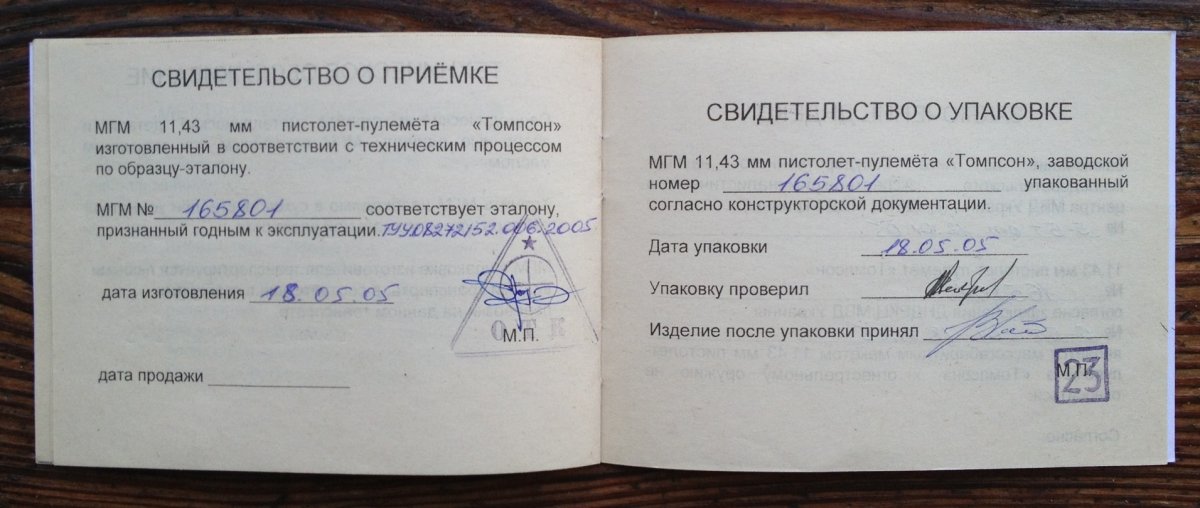 СВИДЕТЕЛЬСТВО О ПРИЁМКЕ
МГМ 11,43 мм пистолет-пулемёта «Томпсон»
изготовленный в соответствии с техническим процессом
по образцу-эталону.
МГМ № 165801 соответствует эталону,
признанный годным к эксплуатации.
дата изготовления 18.05.05
ОТК
М.П.
дата продажи
СВИДЕТЕЛЬСТВО О УПАКОВКЕ
МГМ 11,43 мм пистолет-пулемёта «Томпсон», заводской
номер 165801 упакованный
согласно конструкторской документации.
Дата упаковки 18.05.05
Упаковку проверил
Изделие после упаковки принял
М.П.
23